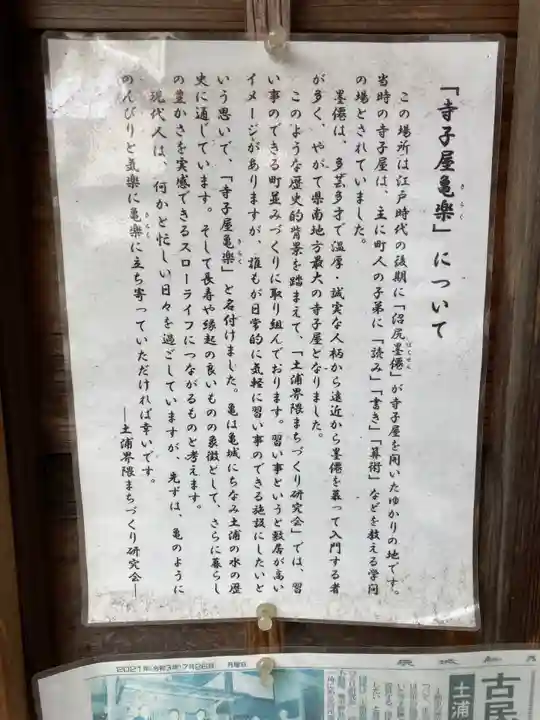 「寺子屋亀楽」について
きらく
この場所は江戸時代の後期に「沼尻墨僊」が寺子屋を開いたゆかりの地です。
ぼくせん
当時の寺子屋は、主に町人の子弟に「読み」「書き」「算術」などを教える学問
の場とされていました。
墨僊は、多芸多才で温厚・誠実な人柄から遠近から墨僊を慕って入門する者
が多く、やがて県南地方最大の寺子屋となりました。
このような歴史的背景を踏まえて、「土浦界隈まちづくり研究会」では、習
い事のできる町並みづくりに取り組んでおります。習い事というと敷居が高い
イメージがありますが、誰もが日常的に気軽に習い事のできる施設にしたいと
いう思いで、「寺子屋亀楽」と名付けました。亀は亀城にちなみ土浦の水の歴
きらく
史に通じています。そして長寿や縁起の良いものの象徴として、さらに暮らし
の豊かさを実感できるスローライフにつながるものと考えます。
現代人は、何かと忙しい日々を過ごしていますが、先ずは、亀のように
のんびりと気楽に亀楽に立ち寄っていただければ幸いです。
きらく
―土浦界隈まちづくり研究会―
2021年(令和3年)7月26日 月曜日
茨城新
古民
土浦